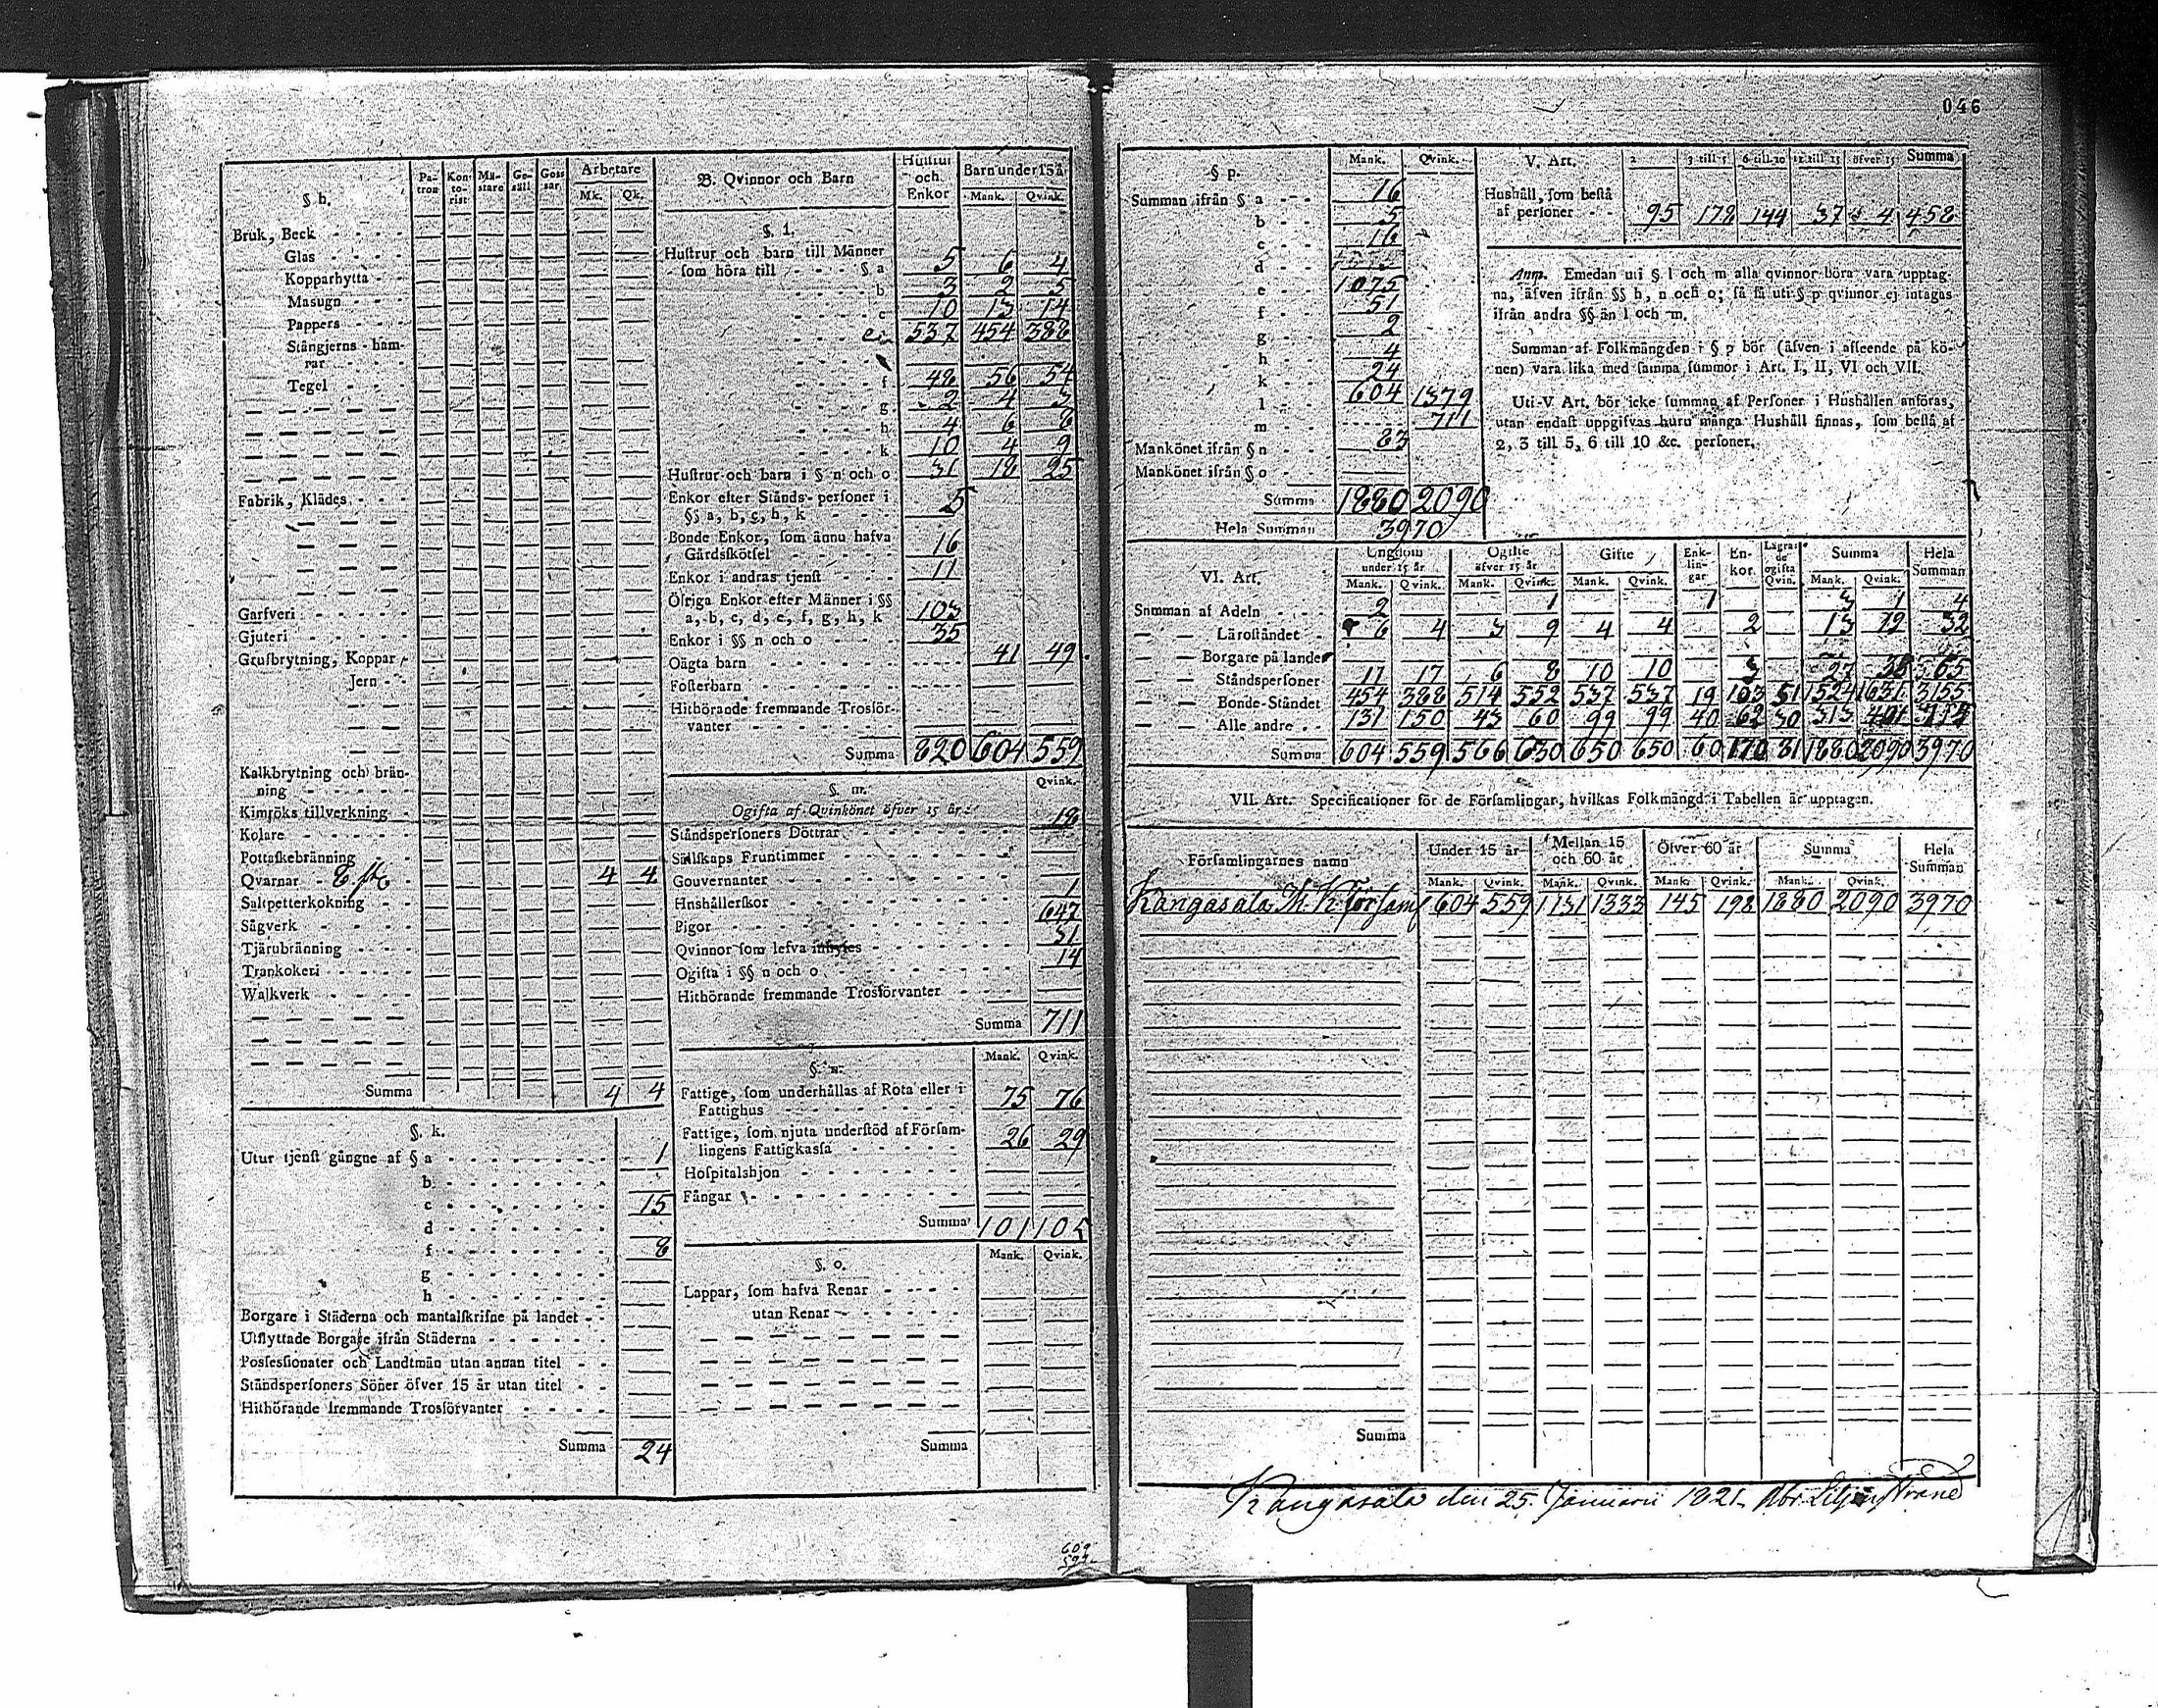 046
§ h.
Pa-tron Kon-to-rist Mä-stare Ge-säll Goss-sar Arbetare
Mk. Qk.
Bruk, Beck
Glas
Kopparhytta
Masugn
Pappers
Stångjerns-ham-
rar
Tegel
Fabrik, Klädes
Garfveri
Gjuteri
Grufbrytning, Koppar
Jern
Kalkbrytning och brän-
ning
Kimröks tillverkning
Kolare
Pottaskebränning
Qvarnar 8 st. 4 4
Saltpetterkokning
Sågverk
Tjärubränning
Trankokeri
Walkverk
Summa 4 4
§. k.
Utur tjenst gångne af § a 1
b
c 15
d
f 8
g
h
Borgare i Städerna och mantalskrifne på landet
Utflyttade Borgare ifrån Städerna
Possessionater och Landtmän utan annan titel
Ståndspersoners Söner öfver 15 år utan titel
Hithörande fremmande Trosförvanter
Summa 24
B. Qvinnor och Barn
Hustrur och Enkor
Barn under 15 år
Mank. Qvink.
§. l.
Hustrur och barn till Männer
som höra till § a 5 6 4
b 3 2 5
c 10 13 14
e 537 454 388
f 48 56 54
g 2 4 3
h 4 6 8
k 10 4 9
Hustrur och barn i § n och o 31 18 25
Enkor efter Stånds-personer i
§§ a, b, c, h, k 5
Bonde Enkor, som ännu hafva
Gårdsskötsel 16
Enkor i andras tjenst 11
Öfriga Enkor efter Männer i §§
a, b, c, d, e, f, g, h, k 103
Enkor i §§ n och o 35
Oägta barn 41 49
Fosterbarn
Hithörande fremmande Trosför-
vanter
Summa 820 604 559
§. m. Qvink.
Ogifta af Qvinkönet öfver 15 år:
Ståndspersoners Döttrar 18
Sällskaps Fruntimmer
Gouvernanter
Hushållerskor 1
Pigor 647
Qvinnor som lefva inhyses 31
Ogifta i §§ n och o 14
Hithörande fremmande Trosförvanter
Summa 711
§. n. Mank. Qvink.
Fattige, som underhållas af Rota eller i
Fattighus 75 76
Fattige, som njuta understöd af Försam-
lingens Fattigkassa 26 29
Hospitalshjon
Fångar
Summa 101 105
§. o. Mank. Qvink.
Lappar, som hafva Renar
utan Renar
Summa
609
599
§ p. Mank. Qvink.
Summan ifrån § a 16
b 5
c 16
d
e 1075
f 51
g 2
h 4
k 24
l 604 1379
m 711
Mankönet ifrån § n 83
Mankönet ifrån § o
Summa 1880 2090
Hela Summan 3970
V. Art. 2 3 till 5 6 till 10 11 till 15 öfver 15 Summa
Hushåll, som bestå
af personer 95 178 144 37 4 458
Anm. Emedan uti § l och m alla qvinnor böra vara upptag-
na, äfven ifrån §§ h, n och o; så få uti § p qvinnor ej intagas
ifrån andra §§ än l och m.
Summan af Folkmängden i § p bör (äfven i afseende på kö-
nen) vara lika med samma summor i Art. I, II, VI och VII.
Uti V Art. bör icke summan af Personer i Hushållen anföras,
utan endast uppgifvas huru många Hushåll finnas, som bestå af
2, 3 till 5, 6 till 10 &c. personer.
VI. Art.
Ungdom under 15 år Ogifte öfver 15 år Gifte Enk-lin-gar En-kor Lägrade ogifta Qvin. Summa Hela Summan
Mank. Qvink. Mank. Qvink. Mank. Qvink. Mank. Qvink.
Summan af Adeln 2 1 1 3 1 4
Läroståndet 6 4 3 9 4 4 2 13 19 32
Borgare på landet
Ståndspersoner 11 17 6 8 10 10 3 27 38 65
Bonde-Ståndet 454 388 514 552 537 537 19 103 51 1524 1631 3155
Alle andre 131 150 43 60 99 99 40 62 30 313 401
Summa 604 559 566 630 650 650 60 170 81 1880 2090 3970
VII. Art. Specificationer för de Församlingar, hvilkas Folkmängd i Tabellen är upptagen.
Församlingarnes namn
Under 15 år Mellan 15 och 60 år Öfver 60 år Summa Hela Summan
Mank. Qvink. Mank. Qvink. Mank. Qvink. Mank. Qvink.
Kangasala M. K. Församl. 604 559 1131 1333 145 198 1880 2090 3970
Summa
Kangasala den 25. Januarii 1821. Abr. Liljenstrand